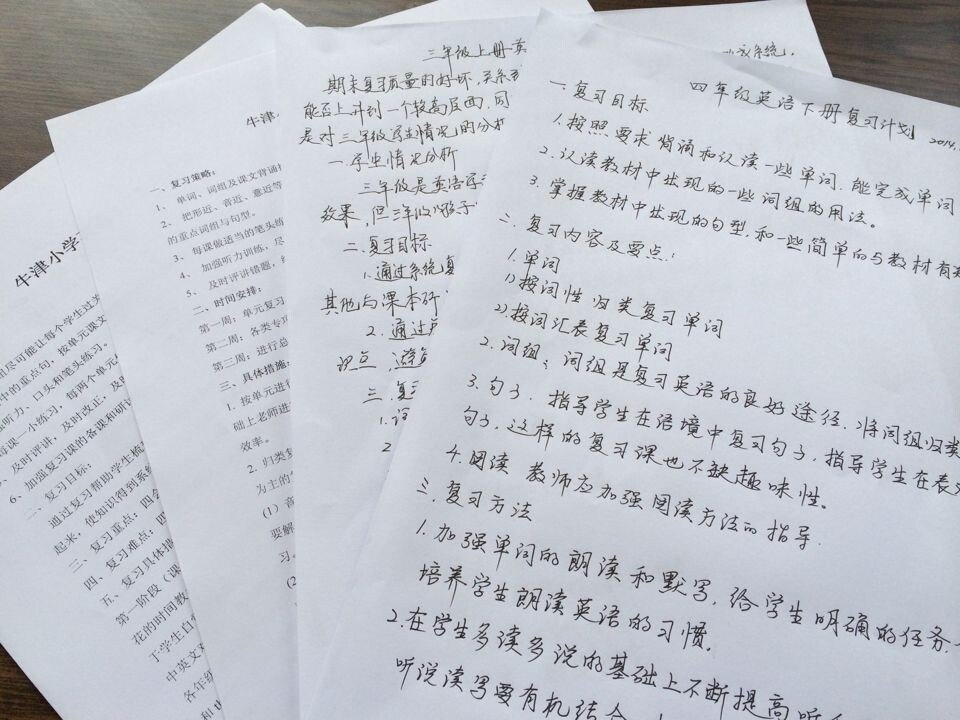 四年级英语下册复习计划 2014.
一.复习目标
1.按照要求背诵和认读一些单词.能完成单词
2.认读教材中出现的一些词组的用法。
3.掌握教材中出现的句型,和一些简单的与教材有
二.复习内容及要点:
1.单词
1)按词性归类复习单词
2)按词汇表复习单词
2.词组:词组是复习英语的良好途径.将词组归类
3.句子.指导学生在语境中复习句子,指导学生在表
句子,这样的复习课也不缺趣味性。
4.阅读 教师应加强阅读方法的指导.
三.复习方法
1.加强单词的朗读和默写,给学生明确的任务.
培养学生朗读英语的习惯.
2.在学生多读多说的基础上不断提高听
听说读写要有机结合
三年级上册英
期末复习质量的好坏,关系
能否上升到一个较高层面.同
是对三年级学生情况的分析
一.学生情况分析
三年级是英语学
效果,但三年级孩子
二.复习目标
1.通过系统复
其他与课本研
2.通过
识点
三.复习
1.词
2
牛津
一、复习策略:
1、单词、词组及课文背诵
2、把形近、音近、意近等
的重点词组与句型。
3、每课做适当的笔头练
4、加强听力训练,尽
5、及时评讲错题,
二、时间安排:
第一周:单元复习
第二周:各类专项
第三周:进行总
三、具体措施:
1.按单元进行
础上老师进
效率。
2.归类复
为主的
(1)音
要解
习。
(2
牛津小学
尽可能让每个学生过关
中的重点句,按单元课文
听力、口头和笔头练习。
每课一小练习,每两个单元
5、及时评讲,及时改正,及
6、加强复习课的备课和研
二、复习目标:
通过复习帮助学生梳
起来,使知识得到系
三、复习重点:四会
四、复习难点:四
五、复习具体措
第一阶段(课
花的时间教
于学生自
中英文对
各年级